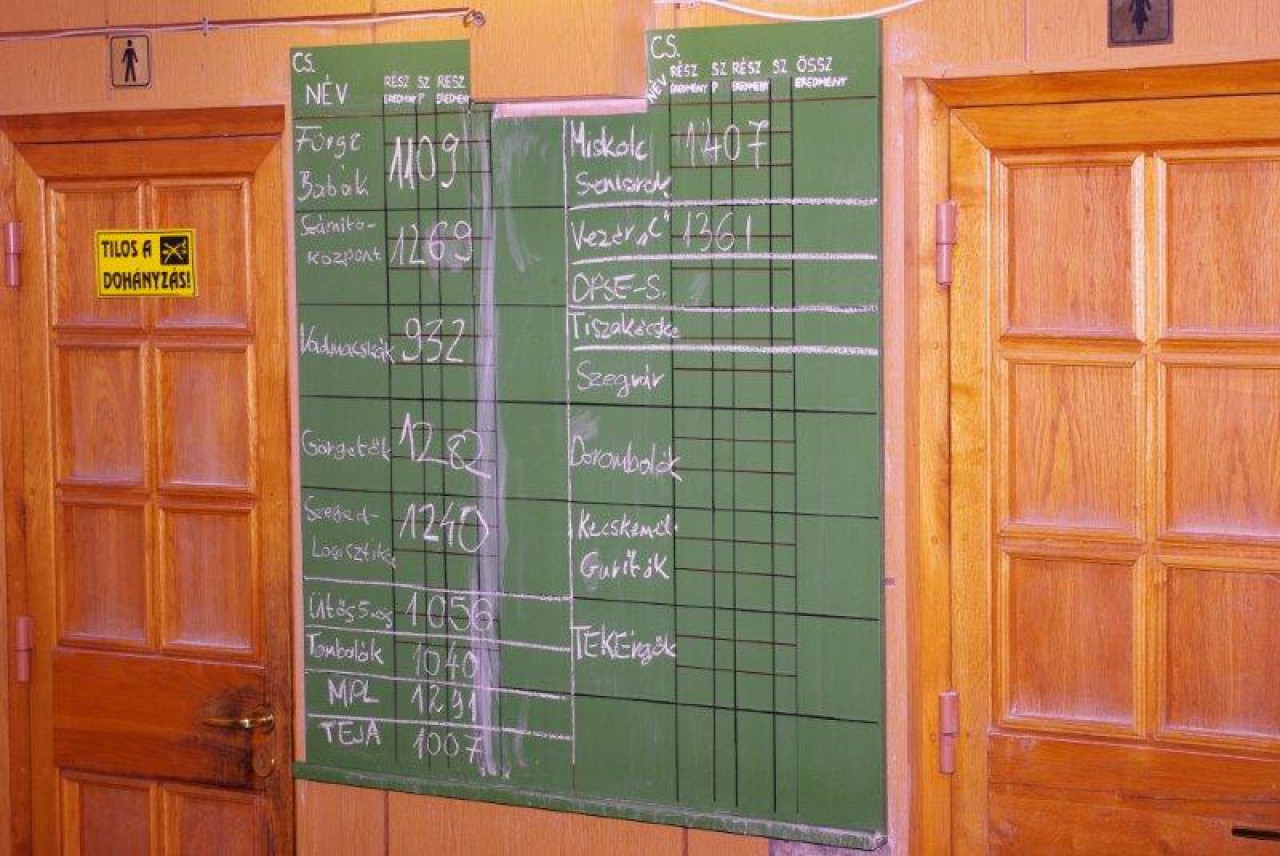 TILOS A
DOHÁNYZÁS!
CS.
NÉV
RÉSZ SZ RÉSZ
EREDMÉNY P EREDMÉNY
Fürge 1109
Babák
Számító- 1269
központ
Vadmacskák 932
Görgetők 1282
Szeged- 1240
Logisztika
Ütős 5-ös 1056
Tombolók 1040
MPL 1291
TEJA 1007
CS.
NÉV
RÉSZ SZ RÉSZ SZ ÖSSZ
EREDMÉNY P EREDMÉNY EREDMÉNY
Miskolc 1407
Seniorok
Vezér „C" 1361
DPSE-S.
Tiszakécske
Szegvár
Dorombolók
Kecskemét
Gurítók
TEKErgők